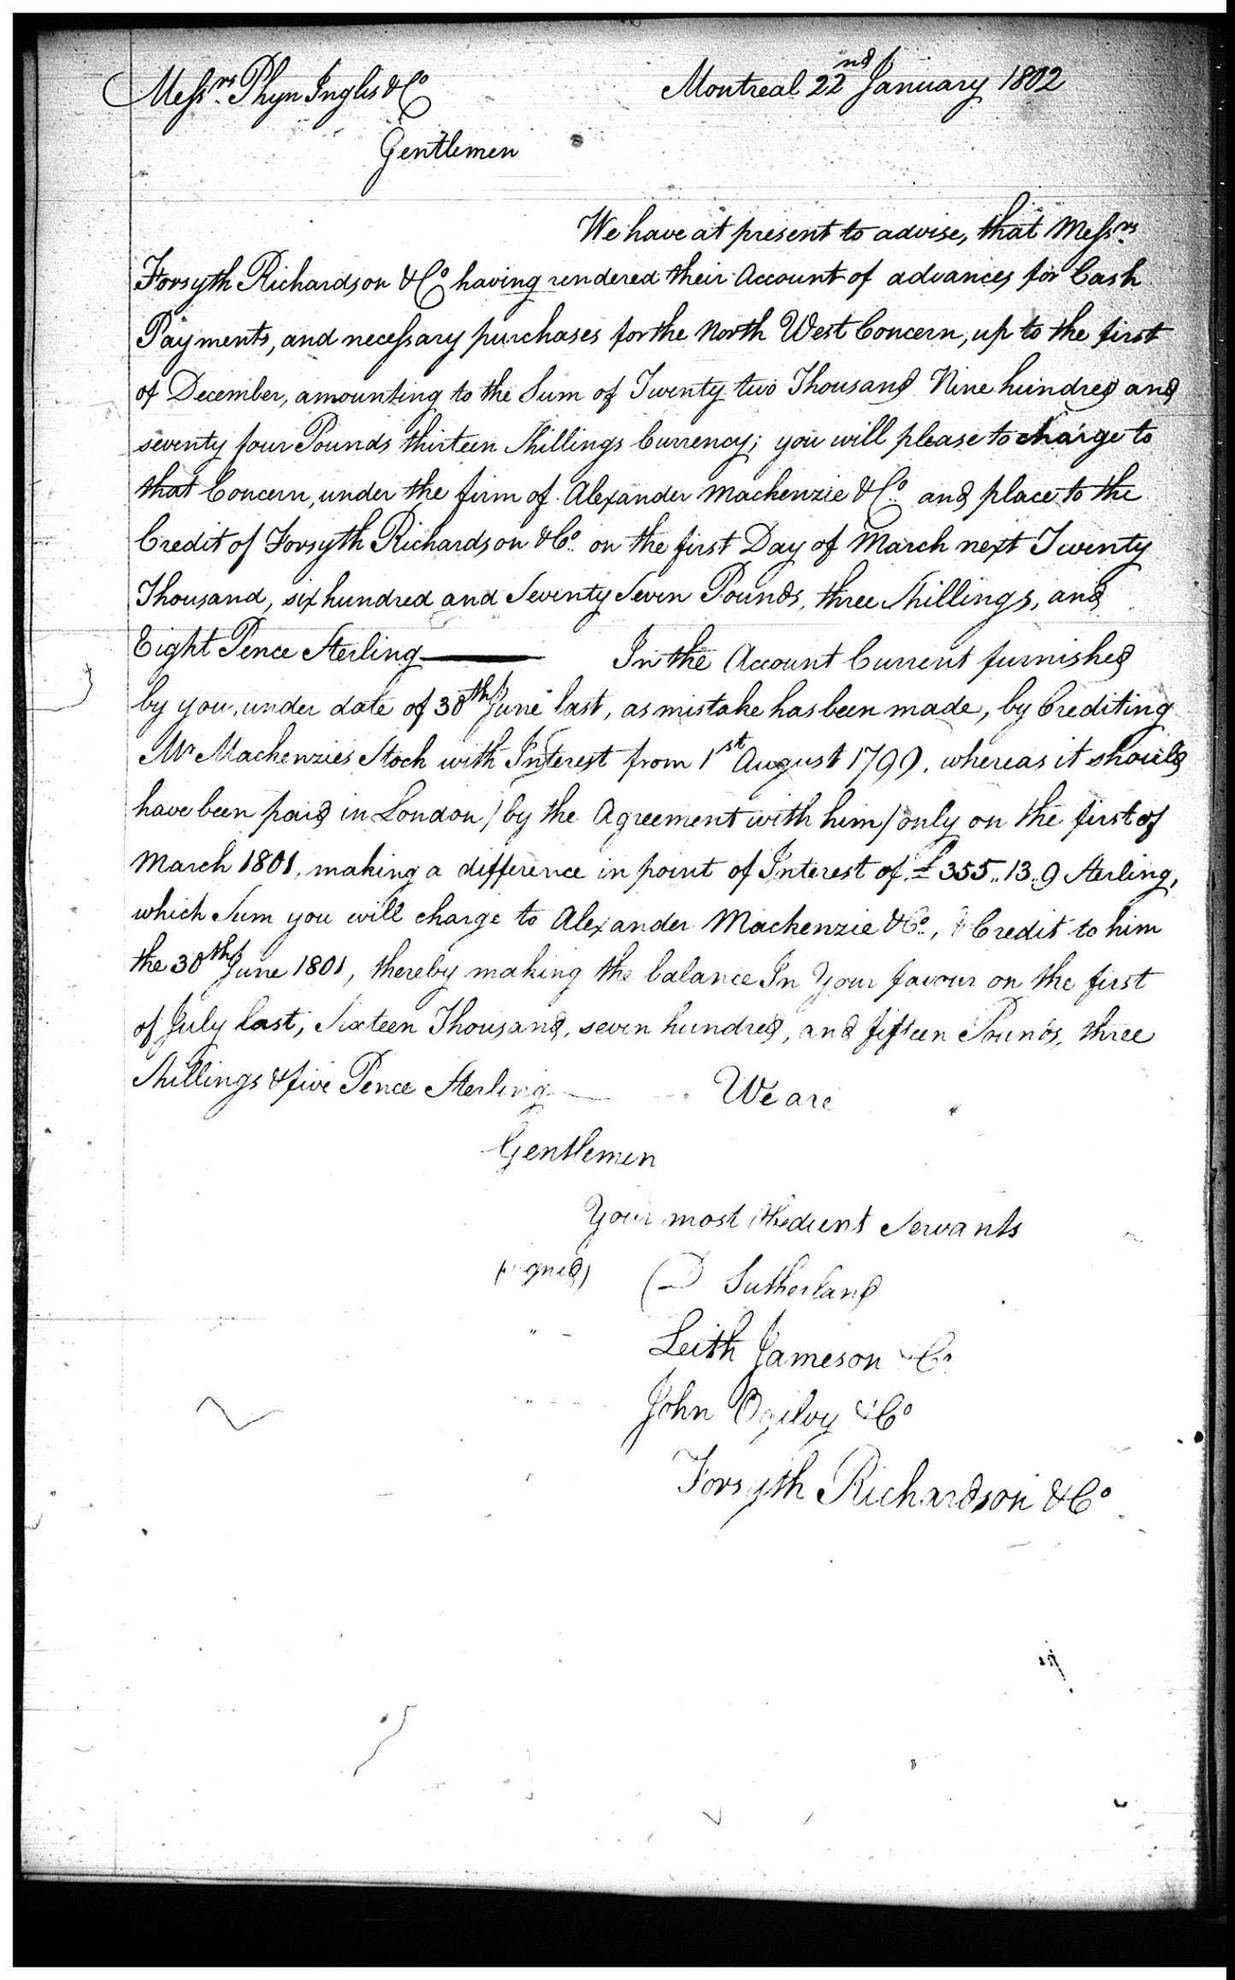 Messrs. Phyn Inglis & Co
Montreal 22nd January 1802
Gentlemen
We have at present to advise, that Messrs.
Forsyth Richardson & Co having rendered their Account of advances for Cash
Payments, and necessary purchases for the North West Concern, up to the first
of December, amounting to the Sum of Twenty two Thousand Nine hundred and
seventy four Pounds thirteen Shillings Currency; you will please to charge to
that Concern, under the firm of Alexander Mackenzie & Co. and place to the
Credit of Forsyth Richardson & Co. on the first Day of March next Twenty
Thousand, six hundred and Seventy Seven Pounds, three Shillings, and
Eight Pence Sterling In the Account Current furnished
by you, under date of 30th June last, as mistake has been made, by Crediting
Mr Mackenzies Stock with Interest from 1st August 1799, whereas it should
have been paid in London / by the Agreement with him / only on the first of
March 1801, making a difference in point of Interest of £355..13..9 Sterling,
which Sum you will charge to Alexander Mackenzie & Co., & Credit to him
the 30th June 1801, thereby making the balance In Your favour on the first
of July last, Sixteen Thousand, seven hundred, and fifteen Pounds, three
Shillings & five Pence Sterling We are
Gentlemen
Your most Obedient Servants
(signed) D Sutherland
" Leith Jameson & Co.
" John Ogilvy & Co
" Forsyth Richardson & Co